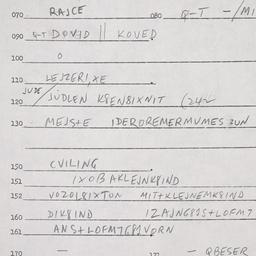 070 RAJCE 080 Q-T - /MI
090 Q-T DOVID || KOVED
100 0
110 LEJZERI,XE
JUDE
120 JUDLEN K8EN8IXNIT (242
130 MEJSTE IDEROREMERMVMES 3UN
150 CVILING
151 IXOBAKLEJNK8IND
152 VOZOL8IXTON MIT+KLEJNEMK8IND
160 DIK8IND IZAJNG8JS+LOFM7
161 ANS+LOFM7G8JVORN
170 — — QBESER